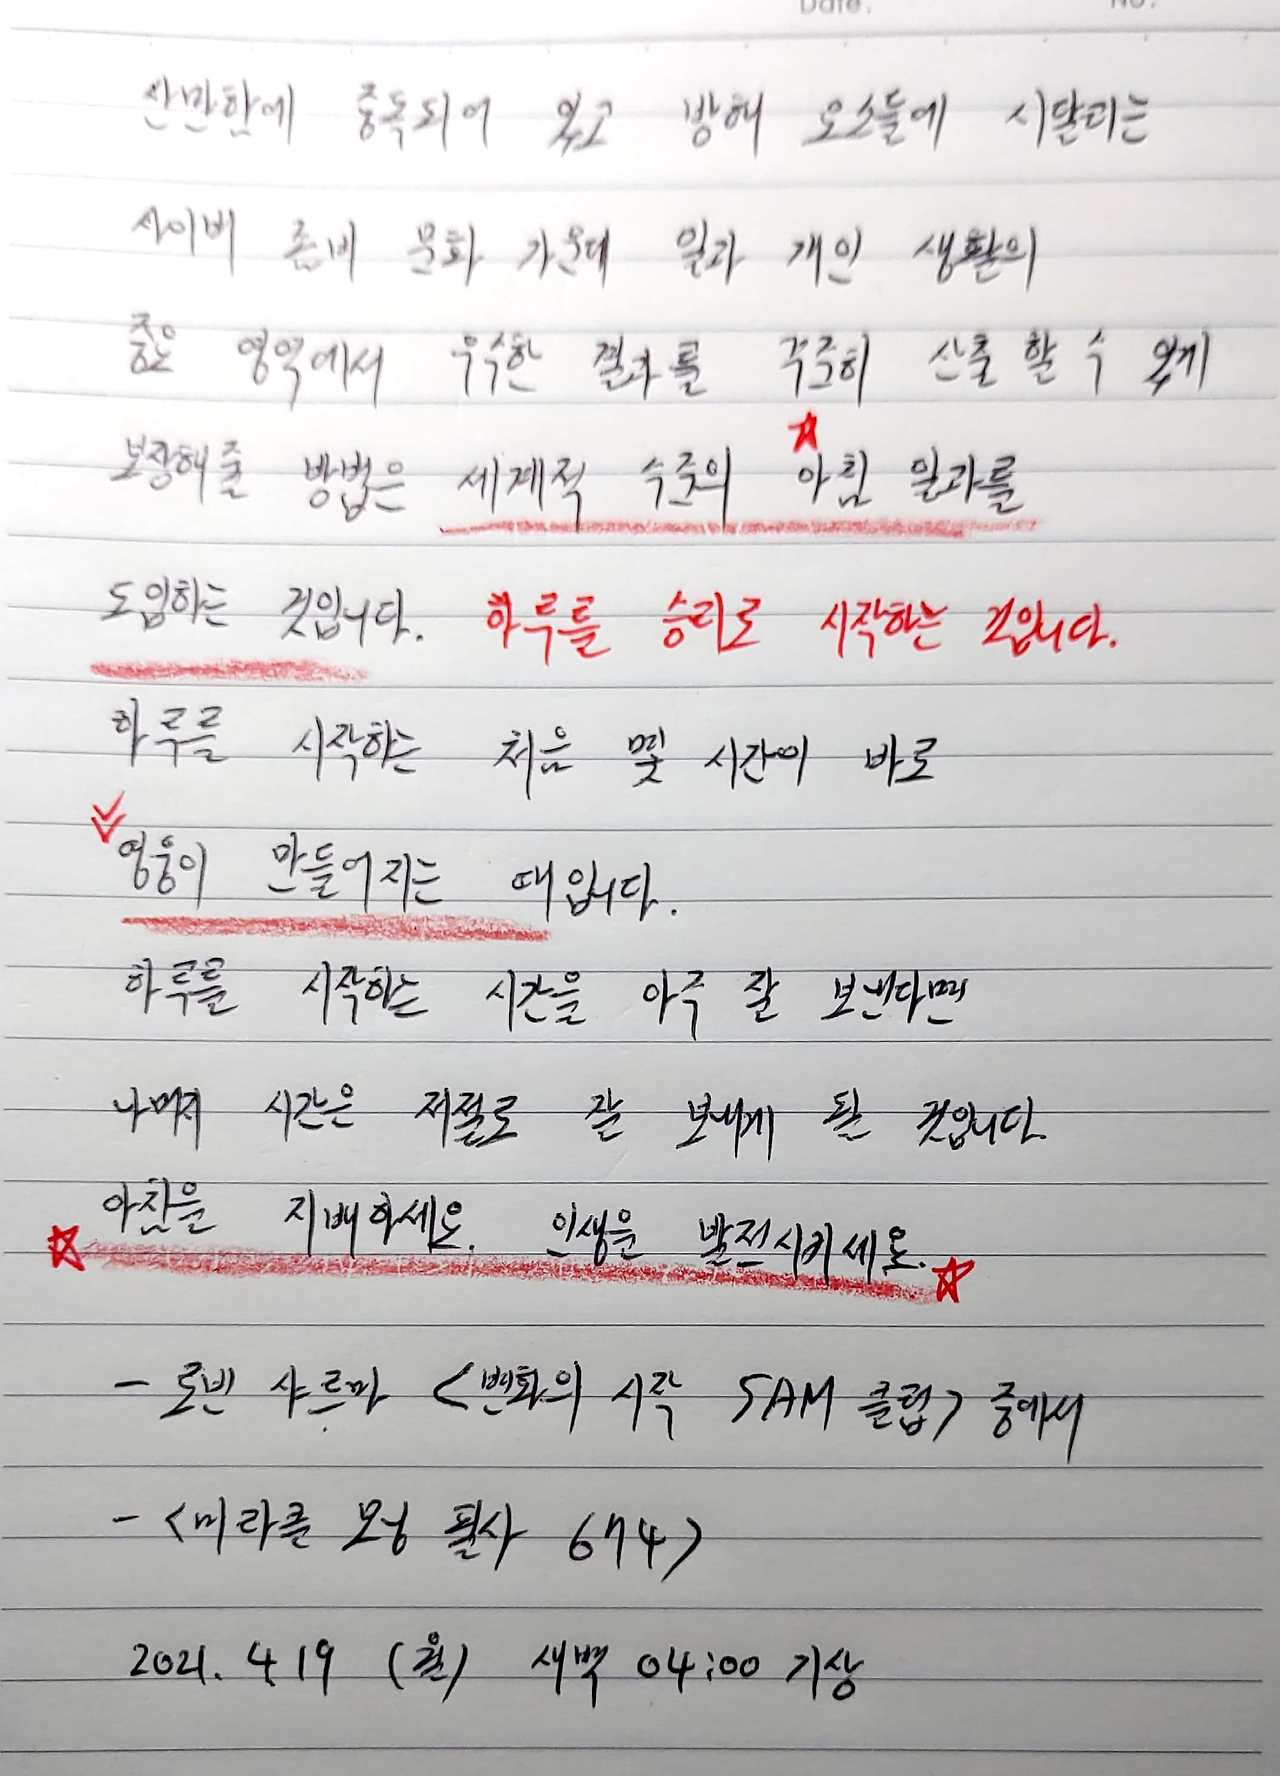 Date. No.
산만함에 중독되어 있고 방해 요소들에 시달리는
사이버 좀비 문화 가운데 일과 개인 생활의
좋은 영역에서 우수한 결과를 꾸준히 산출 할 수 있게
보장해줄 방법은 세계적 수준의 아침 일과를
도입하는 것입니다. 하루를 승리로 시작하는 것입니다.
하루를 시작하는 처음 몇 시간이 바로
영웅이 만들어지는 때입니다.
하루를 시작하는 시간을 아주 잘 보낸다면
나머지 시간은 저절로 잘 보내게 될 것입니다.
아침을 지배하세요. 인생을 발전시키세요.
- 로빈 샤르마 <변화의 시작 5AM 클럽> 중에서
- <미라클 모닝 필사 674>
2021. 4.19 (월) 새벽 04:00 기상